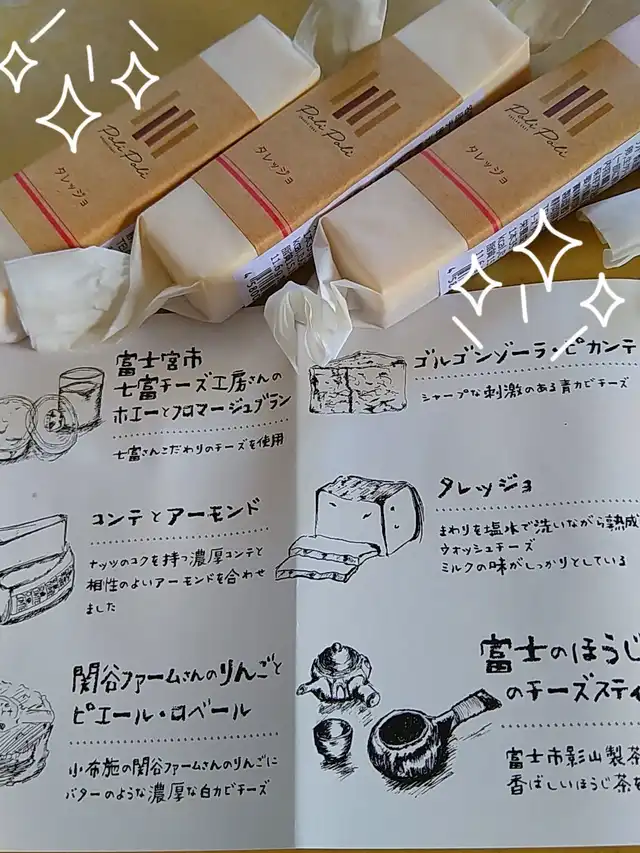 Poli Poli
タレッジョ
Poli Poli
タレッジョ
Poli Poli
タレッジョ
富士宮市
七富チーズ工房さんの
ホエーとフロマージュブラン
七富さんこだわりのチーズを使用
コンテとアーモンド
ナッツのコクを持つ濃厚コンテと
相性のよいアーモンドを合わせ
ました
関谷ファームさんのりんごと
ピエール・ロベール
小布施の関谷ファームさんのりんごに
バターのような濃厚な白カビチーズ
ゴルゴンゾーラ・ピカンテ
シャープな刺激のある青カビチーズ
タレッジョ
まわりを塩水で洗いながら熟成
ウオッシュチーズ
ミルクの味がしっかりとしている
富士のほうじ
のチーズスティ
富士市影山製茶
香ばしいほうじ茶を